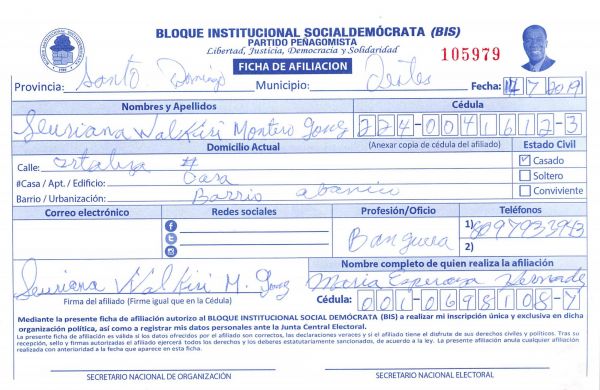 BLOQUE INSTITUCIONAL SOCIALDEMÓCRATA (BIS)
PARTIDO PEÑAGOMISTA
Libertad, Justicia, Democracia y Solidaridad
FICHA DE AFILIACION
105979
Provincia: Santo Domingo Municipio: Oeste Fecha: 14/7/2019
Nombres y Apellidos Cédula
Walkiri Montero 224-0041612-3
Domicilio Actual (Anexar copia de cédula del afiliado) Estado Civil
Calle: ortaliza # Casado
#Casa / Apt. / Edificio: Casa Soltero
Barrio / Urbanización: Barrio abanico Conviviente
Correo electrónico Redes sociales Profesión/Oficio Teléfonos
Banquera 1) 8097933943
2)
Walkiri M.
Nombre completo de quien realiza la afiliación
Maria Esperanza
Firma del afiliado (Firme igual que en la Cédula) Cédula: 001-0698108-
Mediante la presente ficha de afiliación autorizo al BLOQUE INSTITUCIONAL SOCIAL DEMÓCRATA (BIS) a realizar mi inscripción única y exclusiva en dicha
organización política, así como a registrar mis datos personales ante la Junta Central Electoral.
La presente ficha de afiliación es válida si los datos ofrecidos por el afiliado son correctos, las declaraciones veraces y si el afiliado tiene el disfrute de sus derechos civiles y políticos. Tras su
recepción, sello y firmas autorizadas el afiliado ejercerá todos los derechos y los deberes estatutariamente sancionados, de acuerdo a la ley. La presente afiliación anula cualquier afiliación
realizada con anterioridad a la fecha que aparece en esta ficha.
SECRETARIO NACIONAL DE ORGANIZACIÓN SECRETARIO NACIONAL ELECTORAL